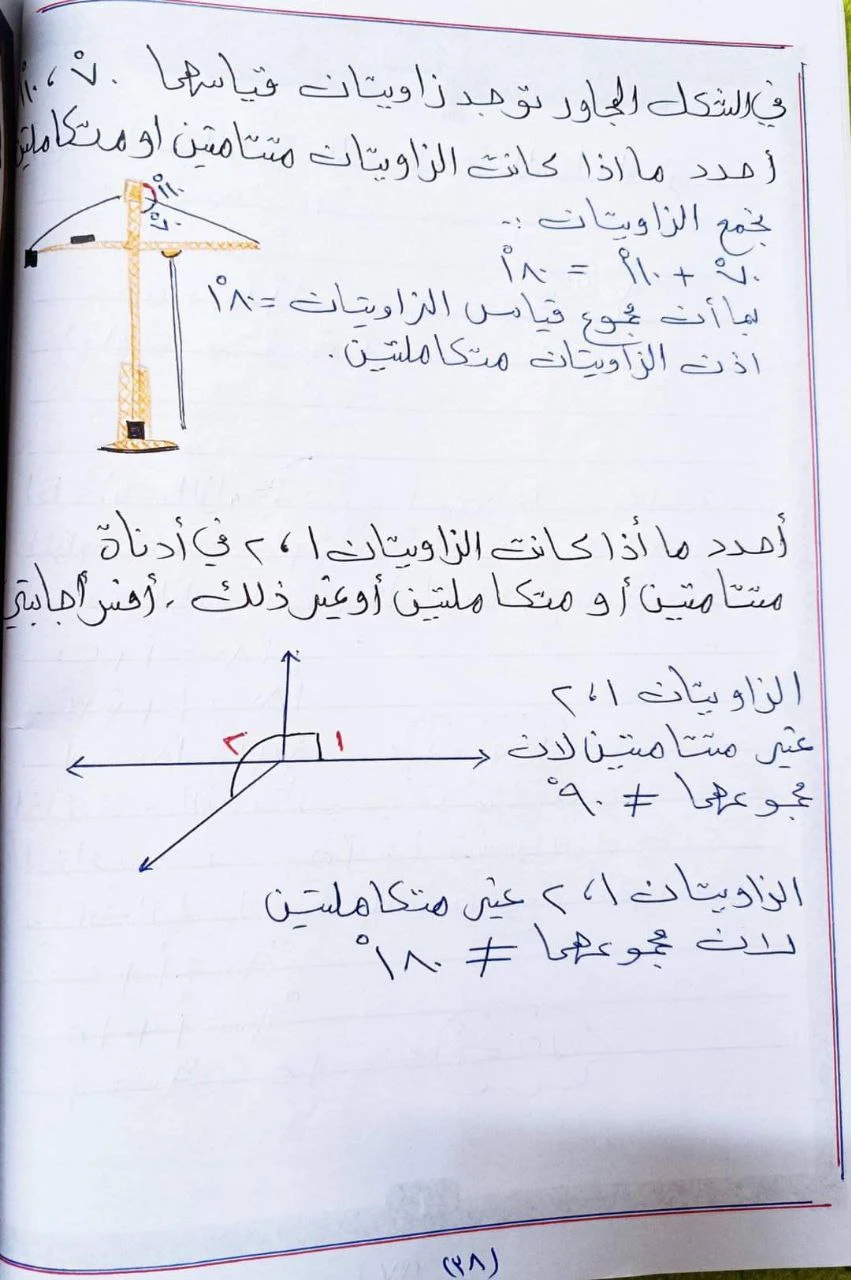 في الشكل المجاور توجد زاويتان قياسهما ٧٠° ، ١١٠°
أحدد ما اذا كانت الزاويتان متتامتين او متكاملتين
نجمع الزاويتان :-
٧٠° + ١١٠° = ١٨٠°
بما أن مجموع قياس الزاويتان = ١٨٠°
اذن الزاويتان متكاملتين .
١١٠°
٧٠°
أحدد ما أذا كانت الزاويتان ١ ، ٢ في أدناة
متتامتين أو متكاملتين أو غير ذلك . أفسر أجابتي
الزاويتان ١ ، ٢
غير متتامتين لان
مجموعهما ≠ ٩٠°
٢ ١
الزاويتان ١ ، ٢ غير متكاملتين
لان مجموعهما ≠ ١٨٠°
(٣٨)